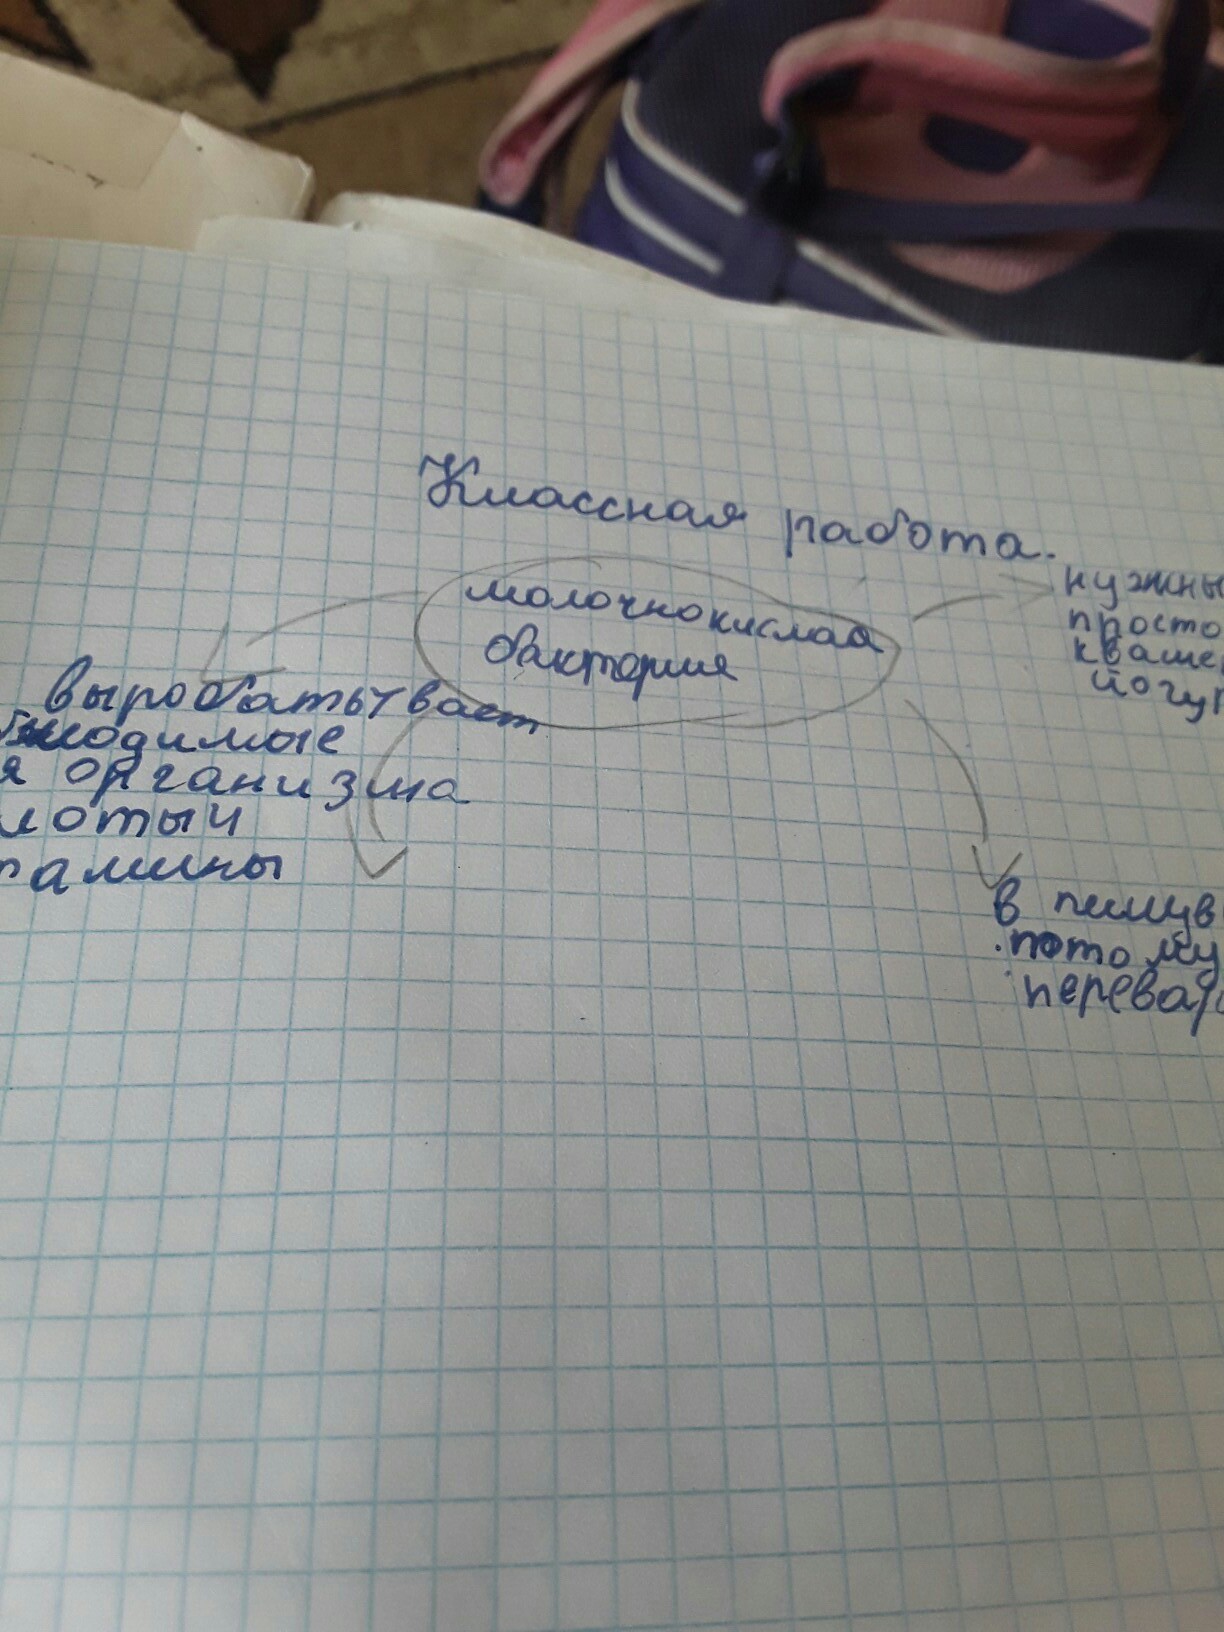 Классная работа.
молочнокислая
бактерия
выробатывает
ходимые
я организма
лоты и
тамины
нужны
просто
кваше
йогур
в пищув
потому
перевар